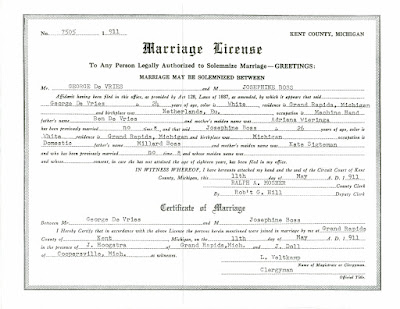 No. 7505 1911 KENT COUNTY, MICHIGAN
Marriage License
To Any Person Legally Authorized to Solemnize Marriage—GREETINGS:
MARRIAGE MAY BE SOLEMNIZED BETWEEN
M GEORGE De VRIES and M JOSEPHINE ROSS
Affidavit having been filed in this office, as provided by Act 128, Laws of 1887, as amended, by which it appears that said
George De Vries is 24 years of age, color is White residence is Grand Rapids, Michigan
and birthplace was Netherlands, occupation is Machine Hand
father's name Ben De Vries and mother's maiden name was Adriana Wieringa
has been previously married no times and that said Josephine Ross is 26 years of age, color is
White residence is Grand Rapids, Michigan and birthplace was Michigan occupation is
Domestic father's name Millard Ross and mother's maiden name was Kate Digteman
and who has been previously married no times and whose maiden name was
and whose consent, in case she has not attained the age of eighteen years, has been filed in my office.
IN WITNESS WHEREOF, I have hereunto attached my hand and the seal of the Circuit Court of Kent
County, Michigan, this 11th day of May A. D. 1911
RALPH A. MOSHER
County Clerk
By Rob't G. Hill Deputy Clerk
Certificate of Marriage
Between Mr. George De Vries and M Josephine Ross
I Hereby Certify that in accordance with the above License the persons herein mentioned were joined in marriage by me at Grand Rapids
County of Kent Michigan, on the 11th day of May A. D. 1911
in the presence of J. Hoogstra of Grand Rapids, Mich. and J. Doll
of Coopersville, Mich. as witnesses.
L. Veltkamp
Name of Magistrate or Clergyman
Clergyman
Official Title.